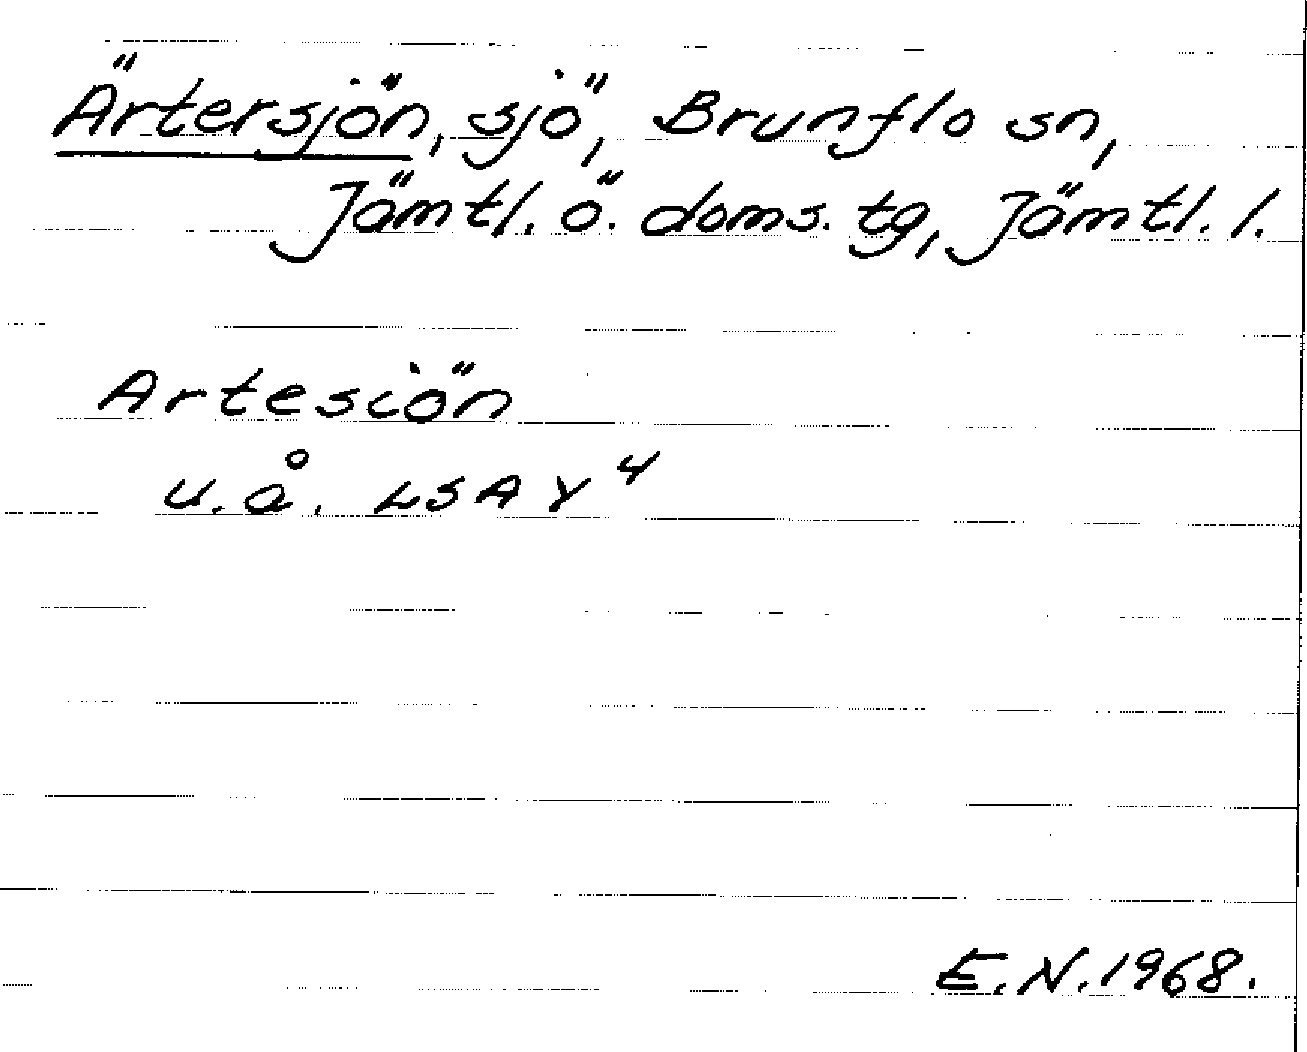 Ärtersjön, sjö, Brunflo sn,
Jämtl. ö. doms. tg, Jämtl. l.
Artesiön
u.å. LSA Y⁴
E.N. 1968.